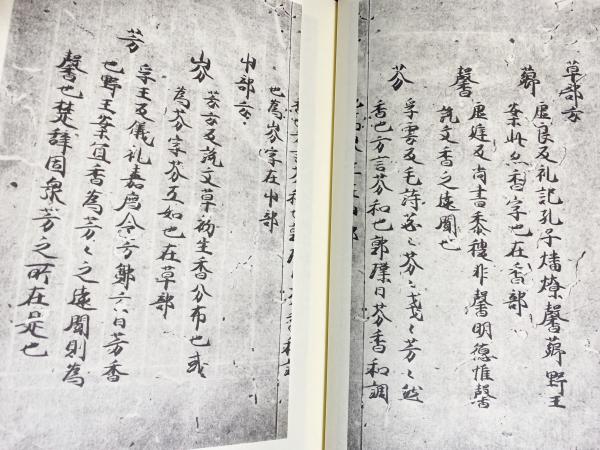 草部云
薌 虚良反礼記孔子燔燎馨薌野王
案此亦香字也在香部
馨 虚庭反尚書黍稷非馨明德惟馨
説文香之遠聞也
芬 孚雲反毛詩苾々芬々箋々芬々然
香也方言芬和也郭璞曰芬香和調
也為岎字在屮部
屮部云
岎 芳云反説文草初生香分布也或
為芬字芬互如也在草部
芳 孚王反儀礼嘉薦令芳鄭玄曰芳香
也野王案直香為芳々之遠聞則為
馨也楚辞固衆芳之所在是也